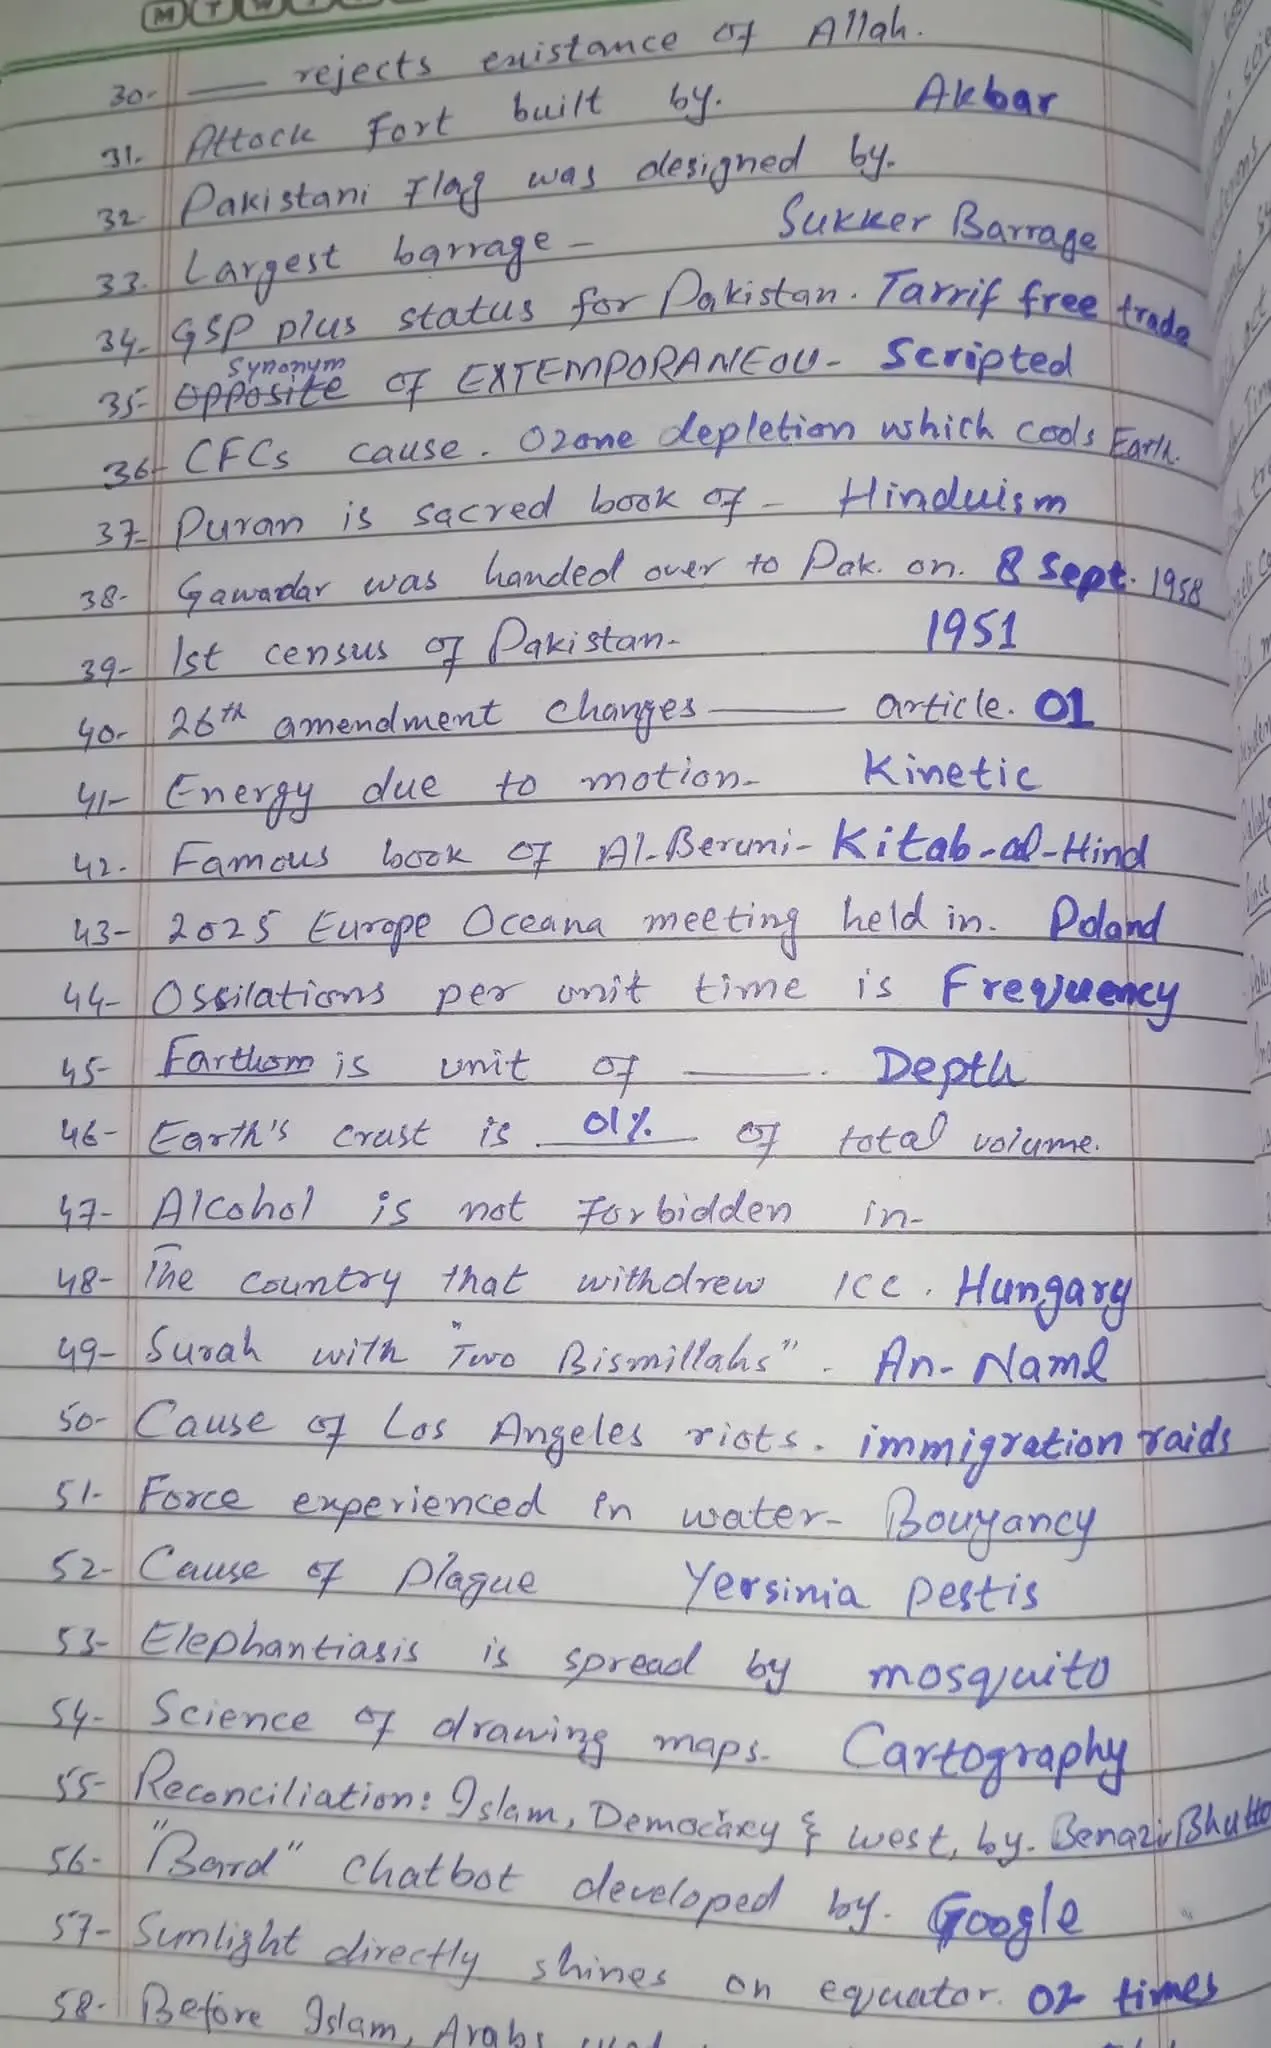 M T W
30- ____ rejects existance of Allah.
31. Attock Fort built by. Akbar
32- Pakistani Flag was designed by.
33. Largest barrage - Sukker Barrage
34- GSP plus status for Pakistan. Tarrif free trade
Synonym
35- Opposite of EXTEMPORANEOU- Scripted
36- CFCs cause. Ozone depletion which cools Earth.
37- Puran is sacred book of - Hinduism
38- Gawadar was handed over to Pak. on. 8 Sept. 1958
39- 1st census of Pakistan- 1951
40- 26th amendment changes ____ article. 01
41- Energy due to motion- Kinetic
42- Famous book of Al-Beruni- Kitab-al-Hind
43- 2025 Europe Oceana meeting held in. Poland
44- Ossilations per unit time is Frequency
45- Farthom is unit of ____. Depth
46- Earth's crust is 01% of total volume.
47- Alcohol is not forbidden in-
48- The country that withdrew ICC. Hungary
49- Surah with "Two Bismillahs". An-Naml
50- Cause of Los Angeles riots. immigration raids
51- Force experienced in water- Bouyancy
52- Cause of Plague Yersinia pestis
53- Elephantiasis is spread by mosquito
54- Science of drawing maps. Cartography
55- Reconciliation: Islam, Democracy & west, by. Benazir Bhutto
56- "Bard" chatbot developed by. Google
57- Sunlight directly shines on equator. 02 times
58- Before Islam, Arabs